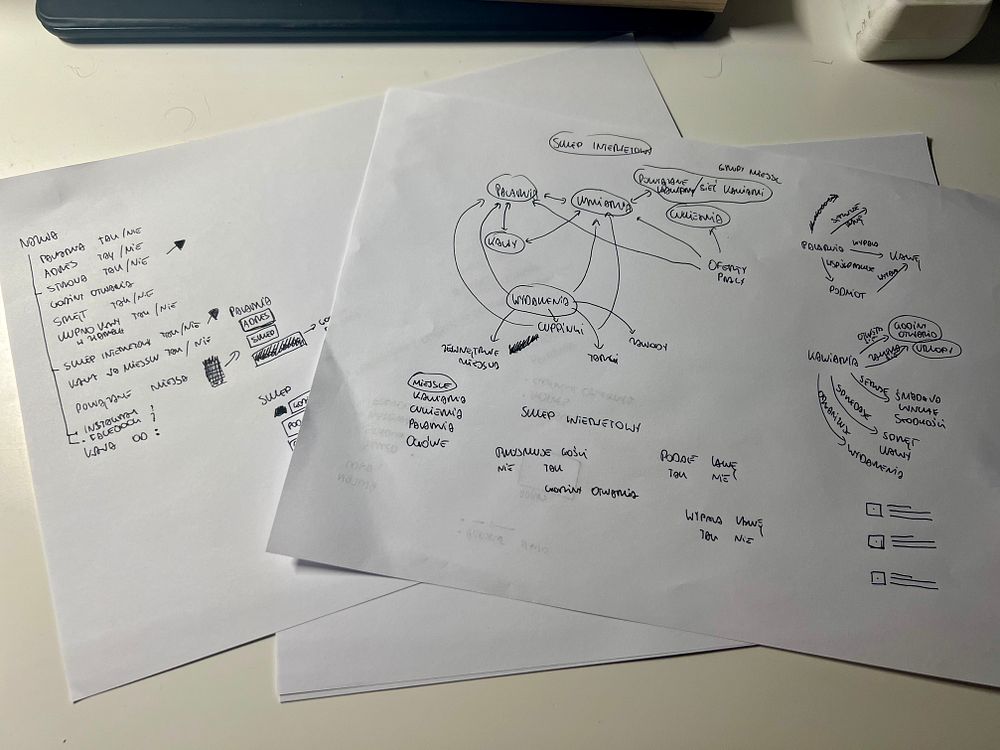 NAZWA
PALARNIA TAK/NIE
ADRES TAK/NIE
STRONA TAK/NIE
GODZINY OTWARCIA
SPRZĘT TAK/NIE
KUPNO KAWY TAK/NIE
SKLEP INTERNETOWY TAK/NIE
KAWA NA MIEJSCU TAK/NIE
POWIĄZANE MIEJSCA
INSTAGRAM ?
FACEBOOK ?
KAWA OD :
PALARNIA
ADRES
SKLEP
SKLEP
SKLEP INTERNETOWY
GRUPY MIEJSC
POWIĄZANE KAWIARNIE / SIEĆ KAWIARNI
PALARNIA
KAWIARNIA
CUKIERNIA
KAWY
OFERTY PRACY
WYDARZENIA
CUPPINGI
ZEWNĘTRZNE MIEJSCA
TARGI
ZAWODY
MIEJSCE
KAWIARNIA
CUKIERNIA
PALARNIA
OGÓLNE
SKLEP INTERNETOWY
PRZYJMUJE GOŚCI
NIE TAK
GODZINY OTWARCIA
PODAJE KAWĘ
TAK NIE
WYPALA KAWĘ
TAK NIE
PALARNIA WYPALA KAWĘ
PODMIOT
KAWIARNIA
GODZINY OTWARCIA
URLOPY
SERWUJE
ŚNIADANIA
LUNCHE
SŁODKOŚCI
SPRZEDAJE
SPRZĘT
KAWY
ORGANIZUJE
WYDARZENIA